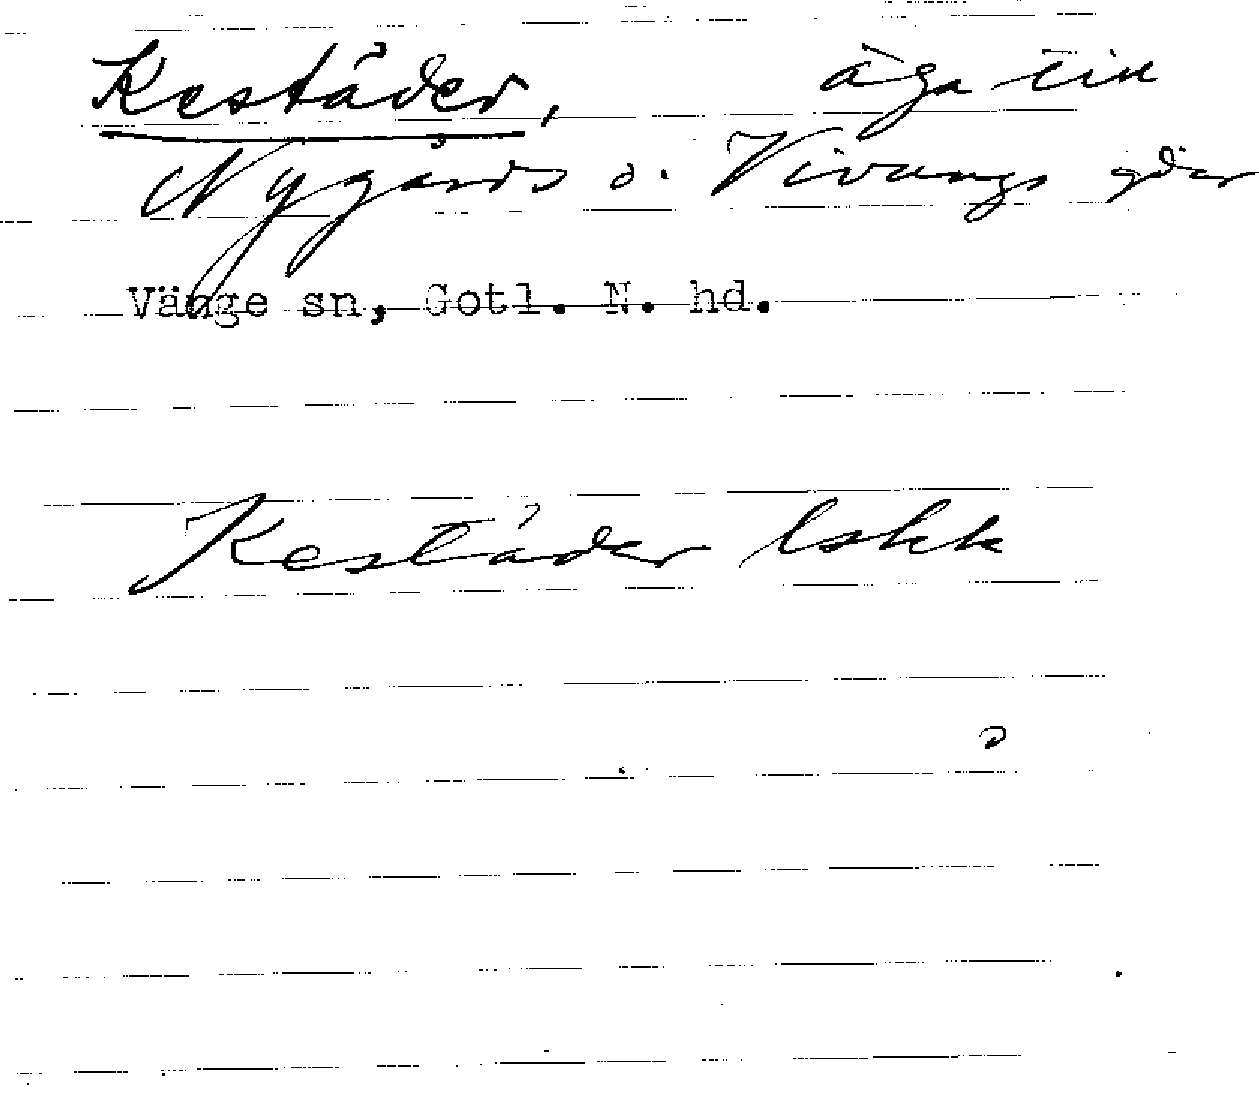 Keståder, äga till
Nygårds o. Vivungs gdar
Vänge sn, Gotl. N. hd.
Keståder lskk